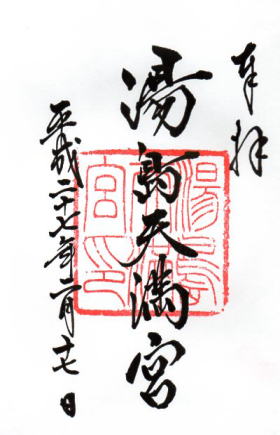 奉拝
湯島天満宮
平成二十七年二月十七日